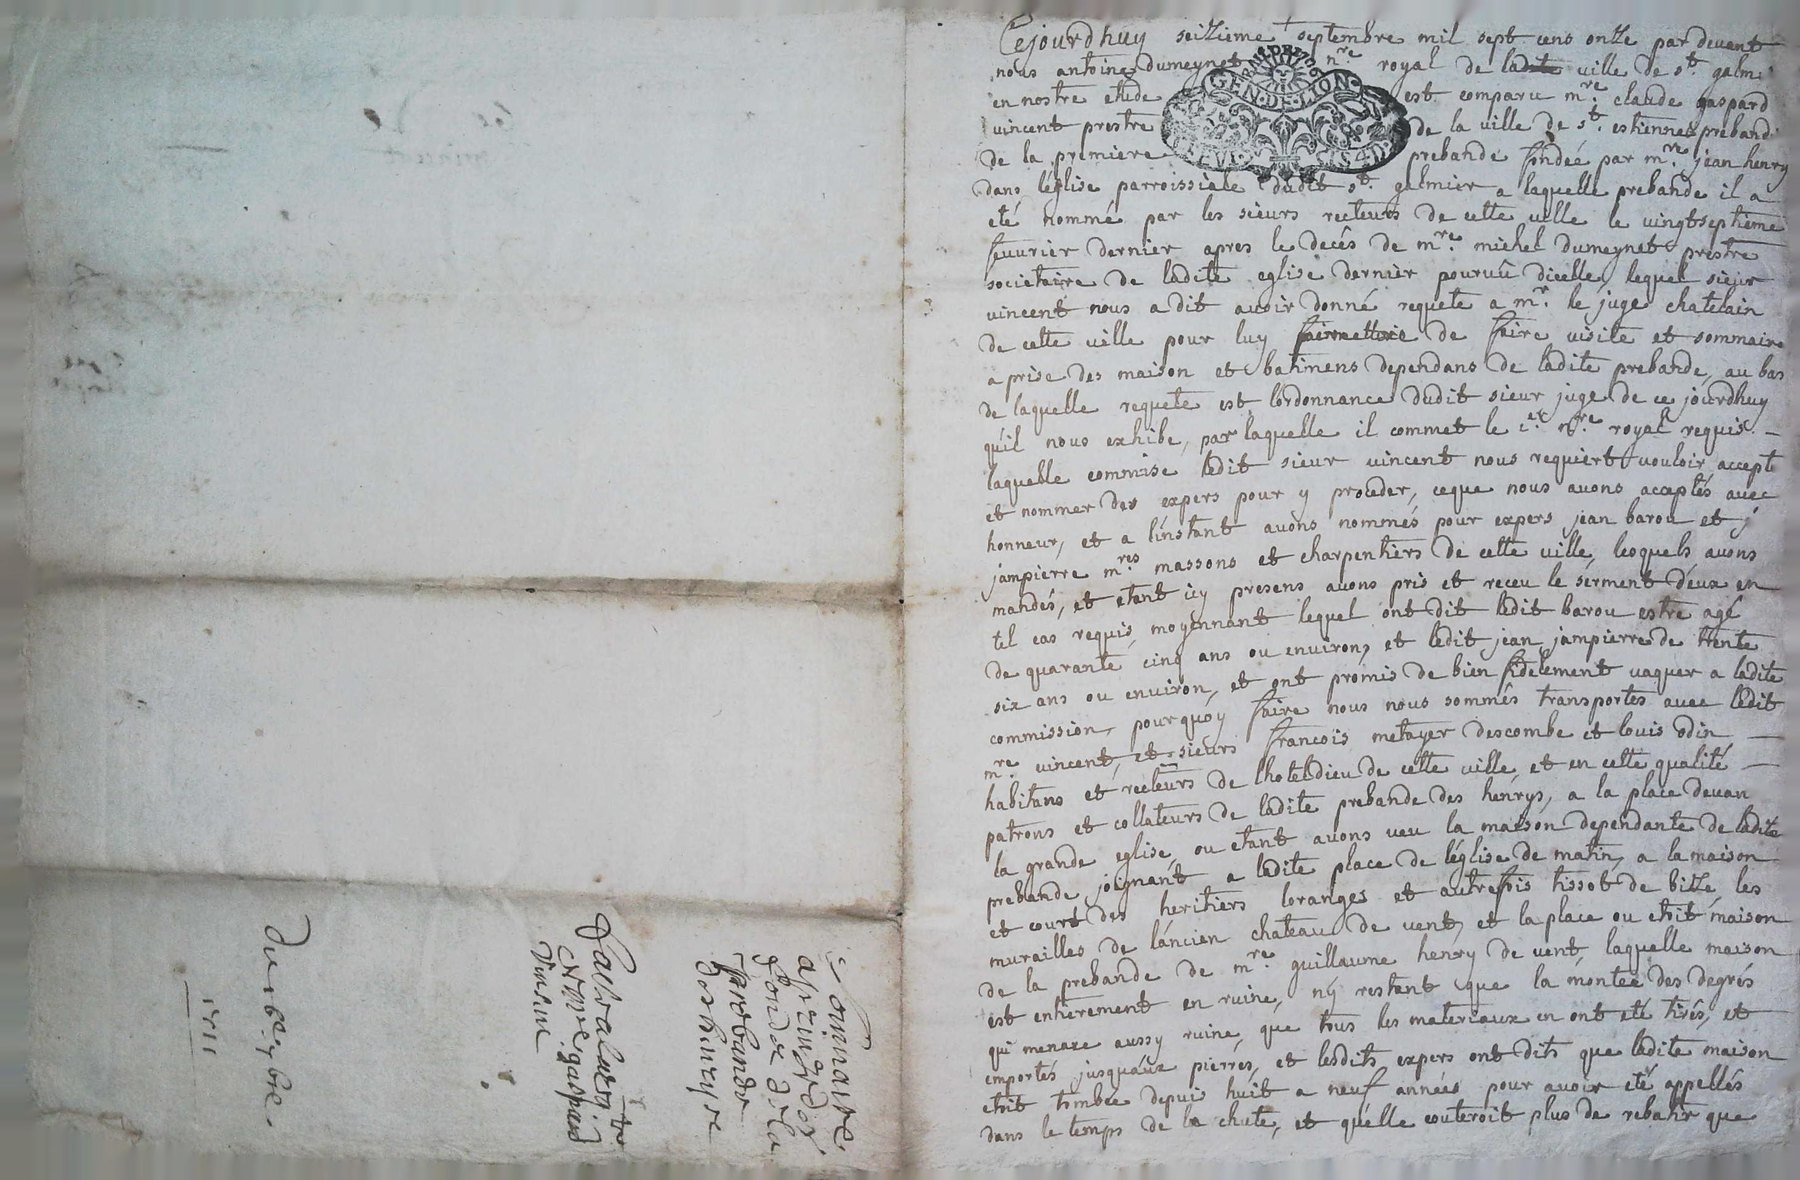 Cejourdhuy seizieme septembre mil sept cens onze par devant
nous antoine dumeynet nre royal de ladite ville de st. galm
en nostre etude est comparu mre. claude gaspard
vincent prestre de la ville de st. estienne preband
de la premiere prebande fondée par mre. jean henry
dans léglise parroissiale dudit st. galmier a laquelle prebande il a
eté nommé par les sieurs recteurs de cette ville le vingtseptieme
feuurier dernier apres le decés de mre. michel dumeynet prestre
societaire de ladite eglise dernier pouruû dicelle, lequel sieur
vincent nous a dit auoir donné requete a mr. le juge chatelain
de cette ville pour luy permettre de faire visite et sommaire
a prise des maison et batimens dependans de ladite prebande, au bas
de laquelle requete est lordonnance dudit sieur juge de ce jourdhuy
quil nous exhibe, par laquelle il commet le nre royal requis
laquelle commise ledit sieur vincent nous requiert vouloir accepte
et nommer des expers pour y proceder, ceque nous auons acceptés avec
honneur, et a linstant auons nommés pour expers jean barou et j
jampierre mres massons et charpentiers de cette ville, lesquels auons
mandés, et etant icy presens auons pris et receu le serment d'eux en
tel cas requis, moyennant lequel ont dit ledit barou estre agé
de quarante cinq ans ou environ, et ledit jean jampierre de trente
six ans ou environ, et ont promis de bien fidelement vaquer a ladite
commission, pourquoy faire nous nous sommés transportés auec ledit
mre. vincent, et sieurs francois metayer descombe et louis odin
habitans et recteurs de lhoteldieu de cette ville, et en cette qualité
patrons et collateurs de ladite prebande des henrys, a la place devan
la grande eglise, ou etant auons veu la maison dependante de ladite
prebande joignant a ladite place de léglise de matin, a la maison
et court des heritiers loranges et autrefois tissot de bize, les
murailles de láncien chateau de vent, et la place ou etoit maison
de la prebande de mre. guillaume henry de vent, laquelle maison
est entierement en ruine, ny restant que la montée des degrés
qui menace aussy ruine, que tous les materiaux en ont eté tirés, et
emportés jusquáux pierres, et lesdits expers ont dit que ladite maison
etoit tombée depuis huit a neuf années pour avoir eté appellés
dans le temps de la chute, et quélle couteroit plus de rebatir que
GEN·DE·LION
Sommaire
a prix des
fonds de la
prebande
des henrys
mre. gaspard
Vincent
1711